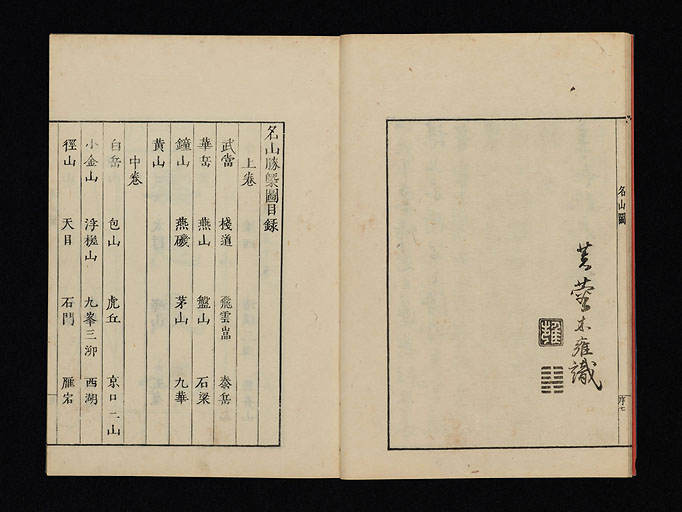 名山圖
芙蓉木雍識
序七
名山勝槩圖目録
上卷
武當 棧道 飛雲嵓 泰岳
華岳 燕山 盤山 石梁
鐘山 燕磯 茅山 九華
黃山
中卷
白岳 包山 虎丘 京口二山
小金山 浮槎山 九峯三泖 西湖
徑山 天目 石門 雁宕